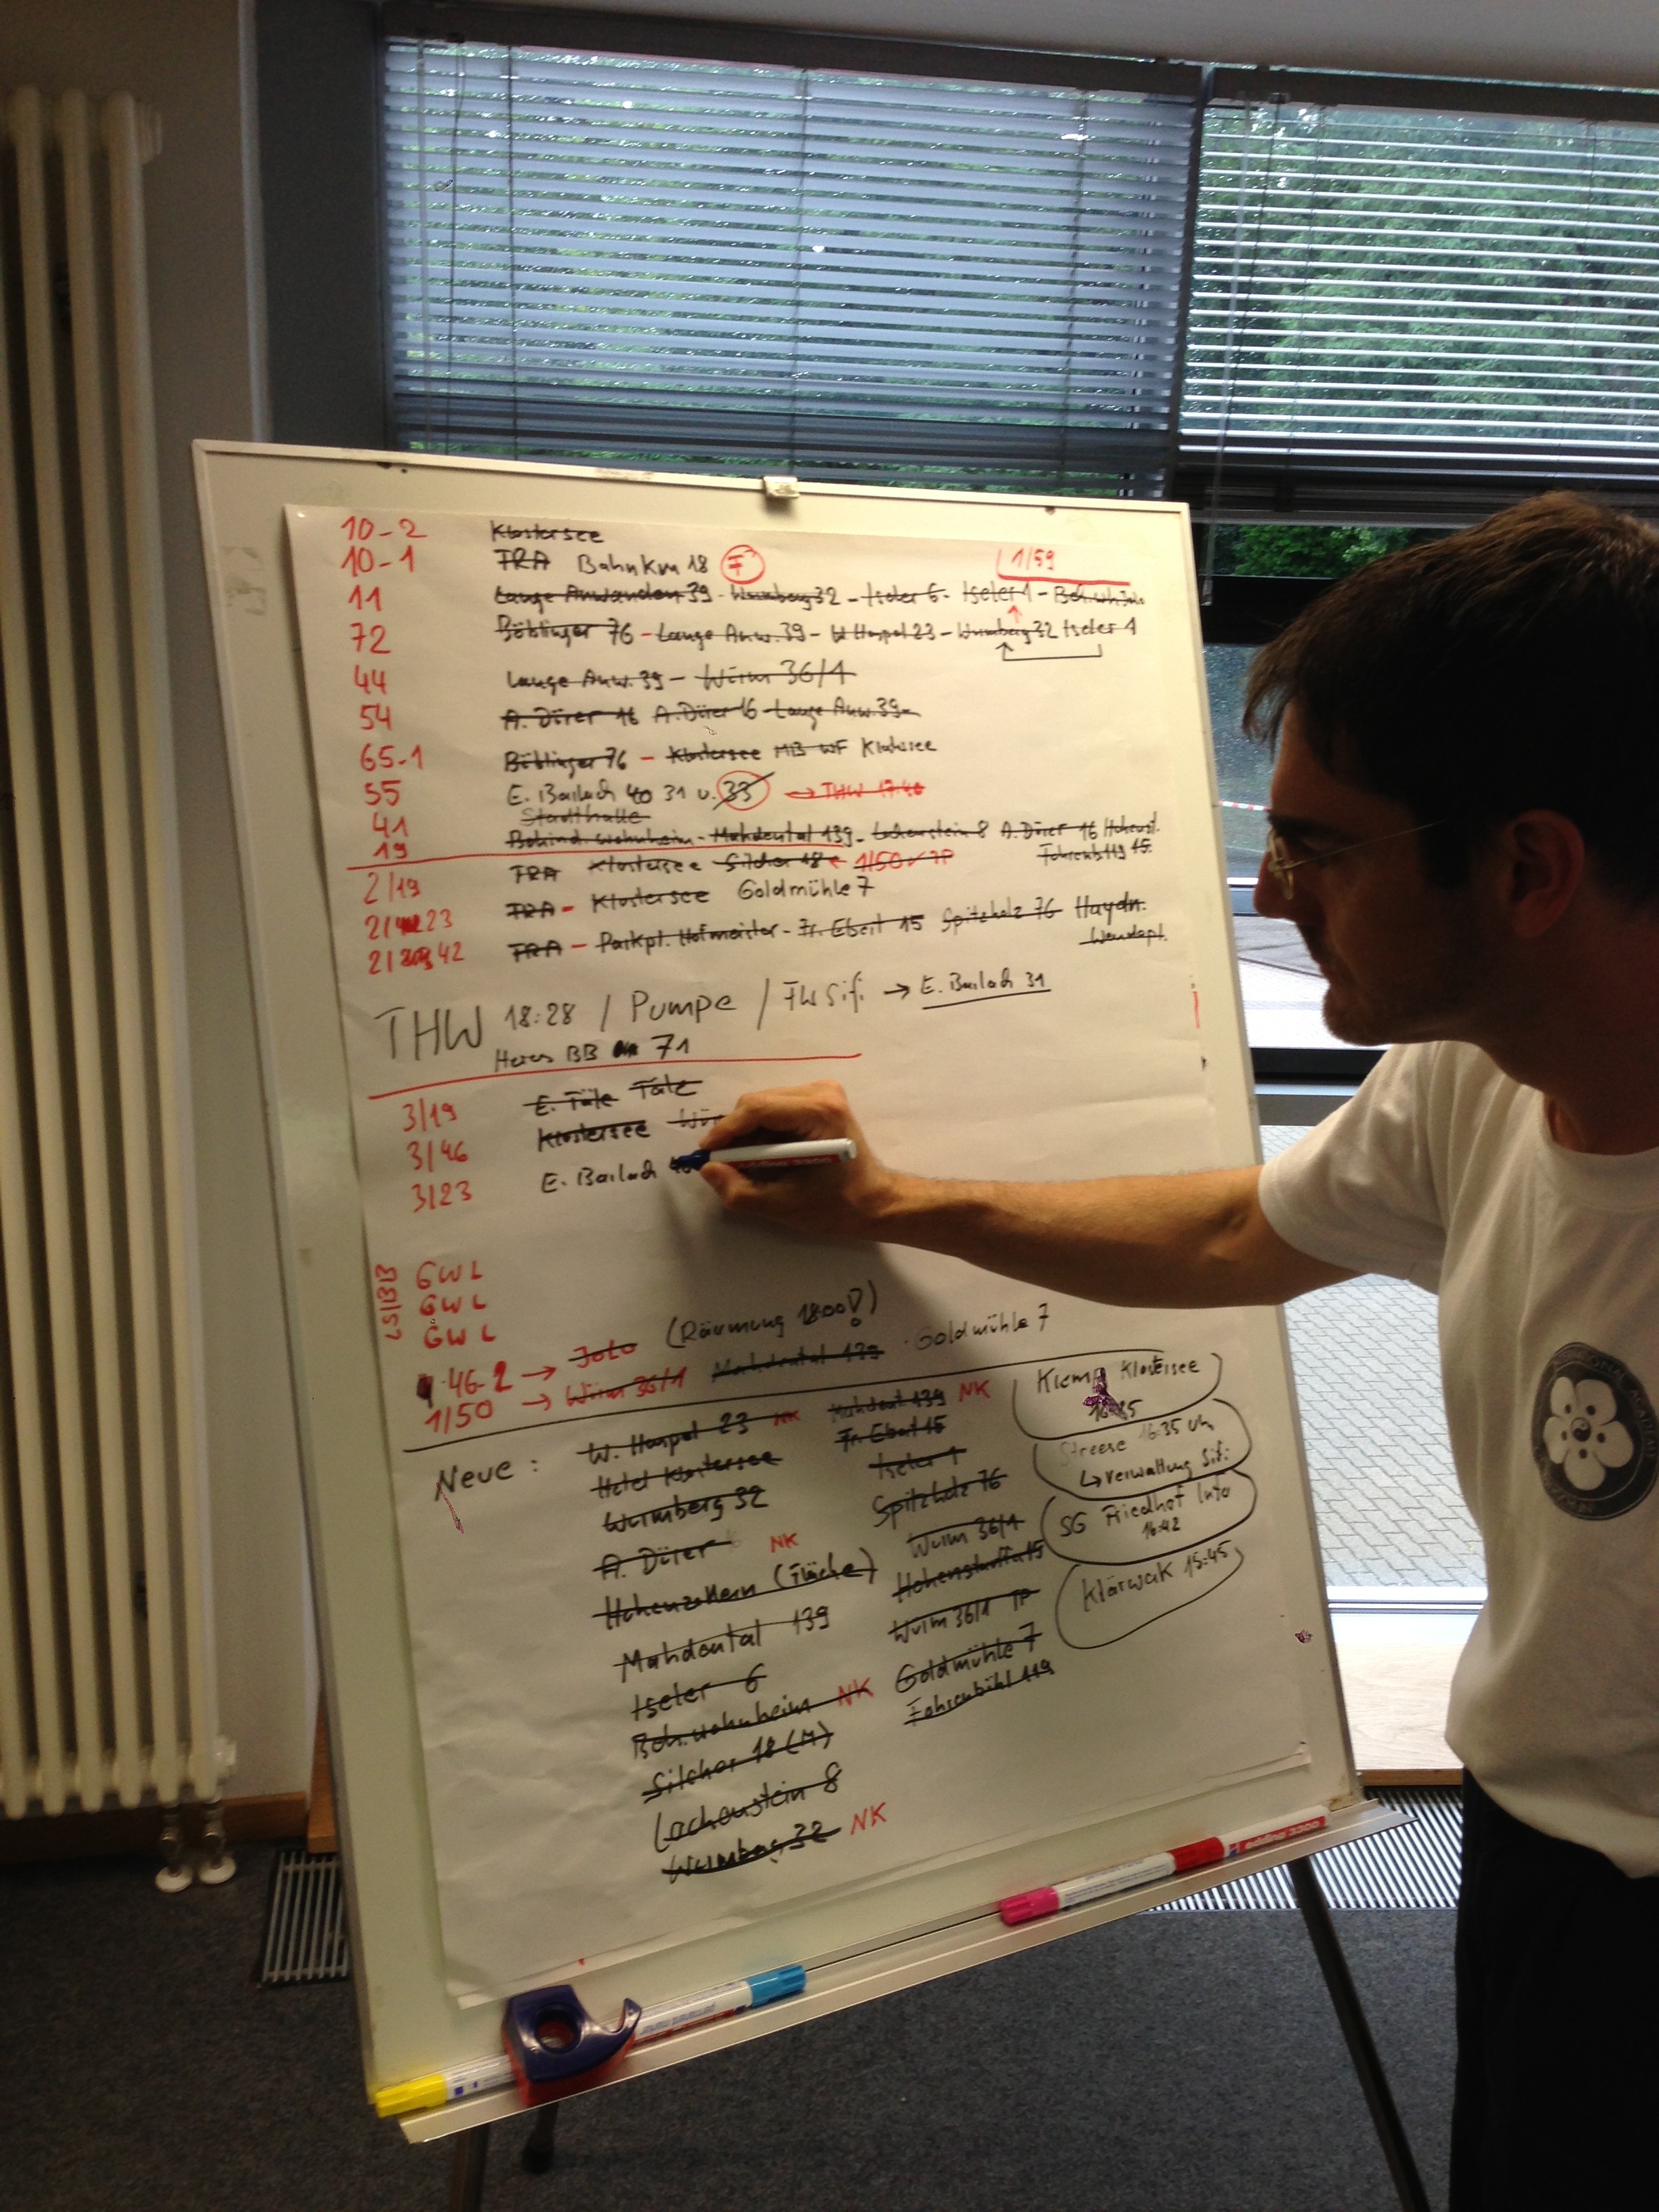 10-2 Klostersee
10-1 TRA Bahnkm 18 F
1/59
11 Lange Anwanden 39 - Wurmberg 32 - Iseler 6 - Iseler 1 -
72 Böblinger 76 - Lange Anw. 39 - W Haspel 23 - Wurmberg 32 Iseler 1
44 Lange Anw. 39 - Würm 36/1
54 A. Dürer 16 A. Dürer 16 Lange Anw. 39
65-1 Böblinger 76 - Klostersee MB WF Klostersee
55 E. Bailach 40 31 u. 33 → THW 17:40
41 Stadthalle
19 Behind. wohnheim - Mahdental 139 - Lechenstein 8 A. Dürer 16 Hohenst. 15
Fohrenb 119
2/19 TRA Klostersee Silcher 18 1/50 TP
2/23 TRA - Klostersee Goldmühle 7
2/42 TRA - Parkpl. Hofmeister - Fr. Ebert 15 Spitzholz 76 Haydn.
Wendepl.
THW 18:28 / Pumpe / FW Sifi → E. Bailach 31
BB 71
3/19 E. Täle Täle
3/46 Klostersee
3/23 E. Bailach
LS/BB GWL
GWL
GWL
46-2 → (Räumung 18:00!)
1/50 → Würm 36/1 Mahdental 139 Goldmühle 7
Neue: W. Haspel 23 NK Mahdent 139 NK
Hotel Klostersee Fr. Ebert 15
Wurmberg 32 Iseler 1
A. Dürer Spitzholz 76
NK
Hohenzollern (Fläche) Würm 36/1
Mahdental 139 Hohenstauffen 15
Iseler 6 Würm 36/1 TP
Beh. wohnheim NK Goldmühle 7
Silcher 18 (M) Fohrenbühl 119
Lachenstein 8
Wurmberg 32 NK
Klostersee
Streese 16:35 Uhr
↳ Verwaltung Sifi
SG Friedhof Info
16:42
Klärwerk 15:45
edding